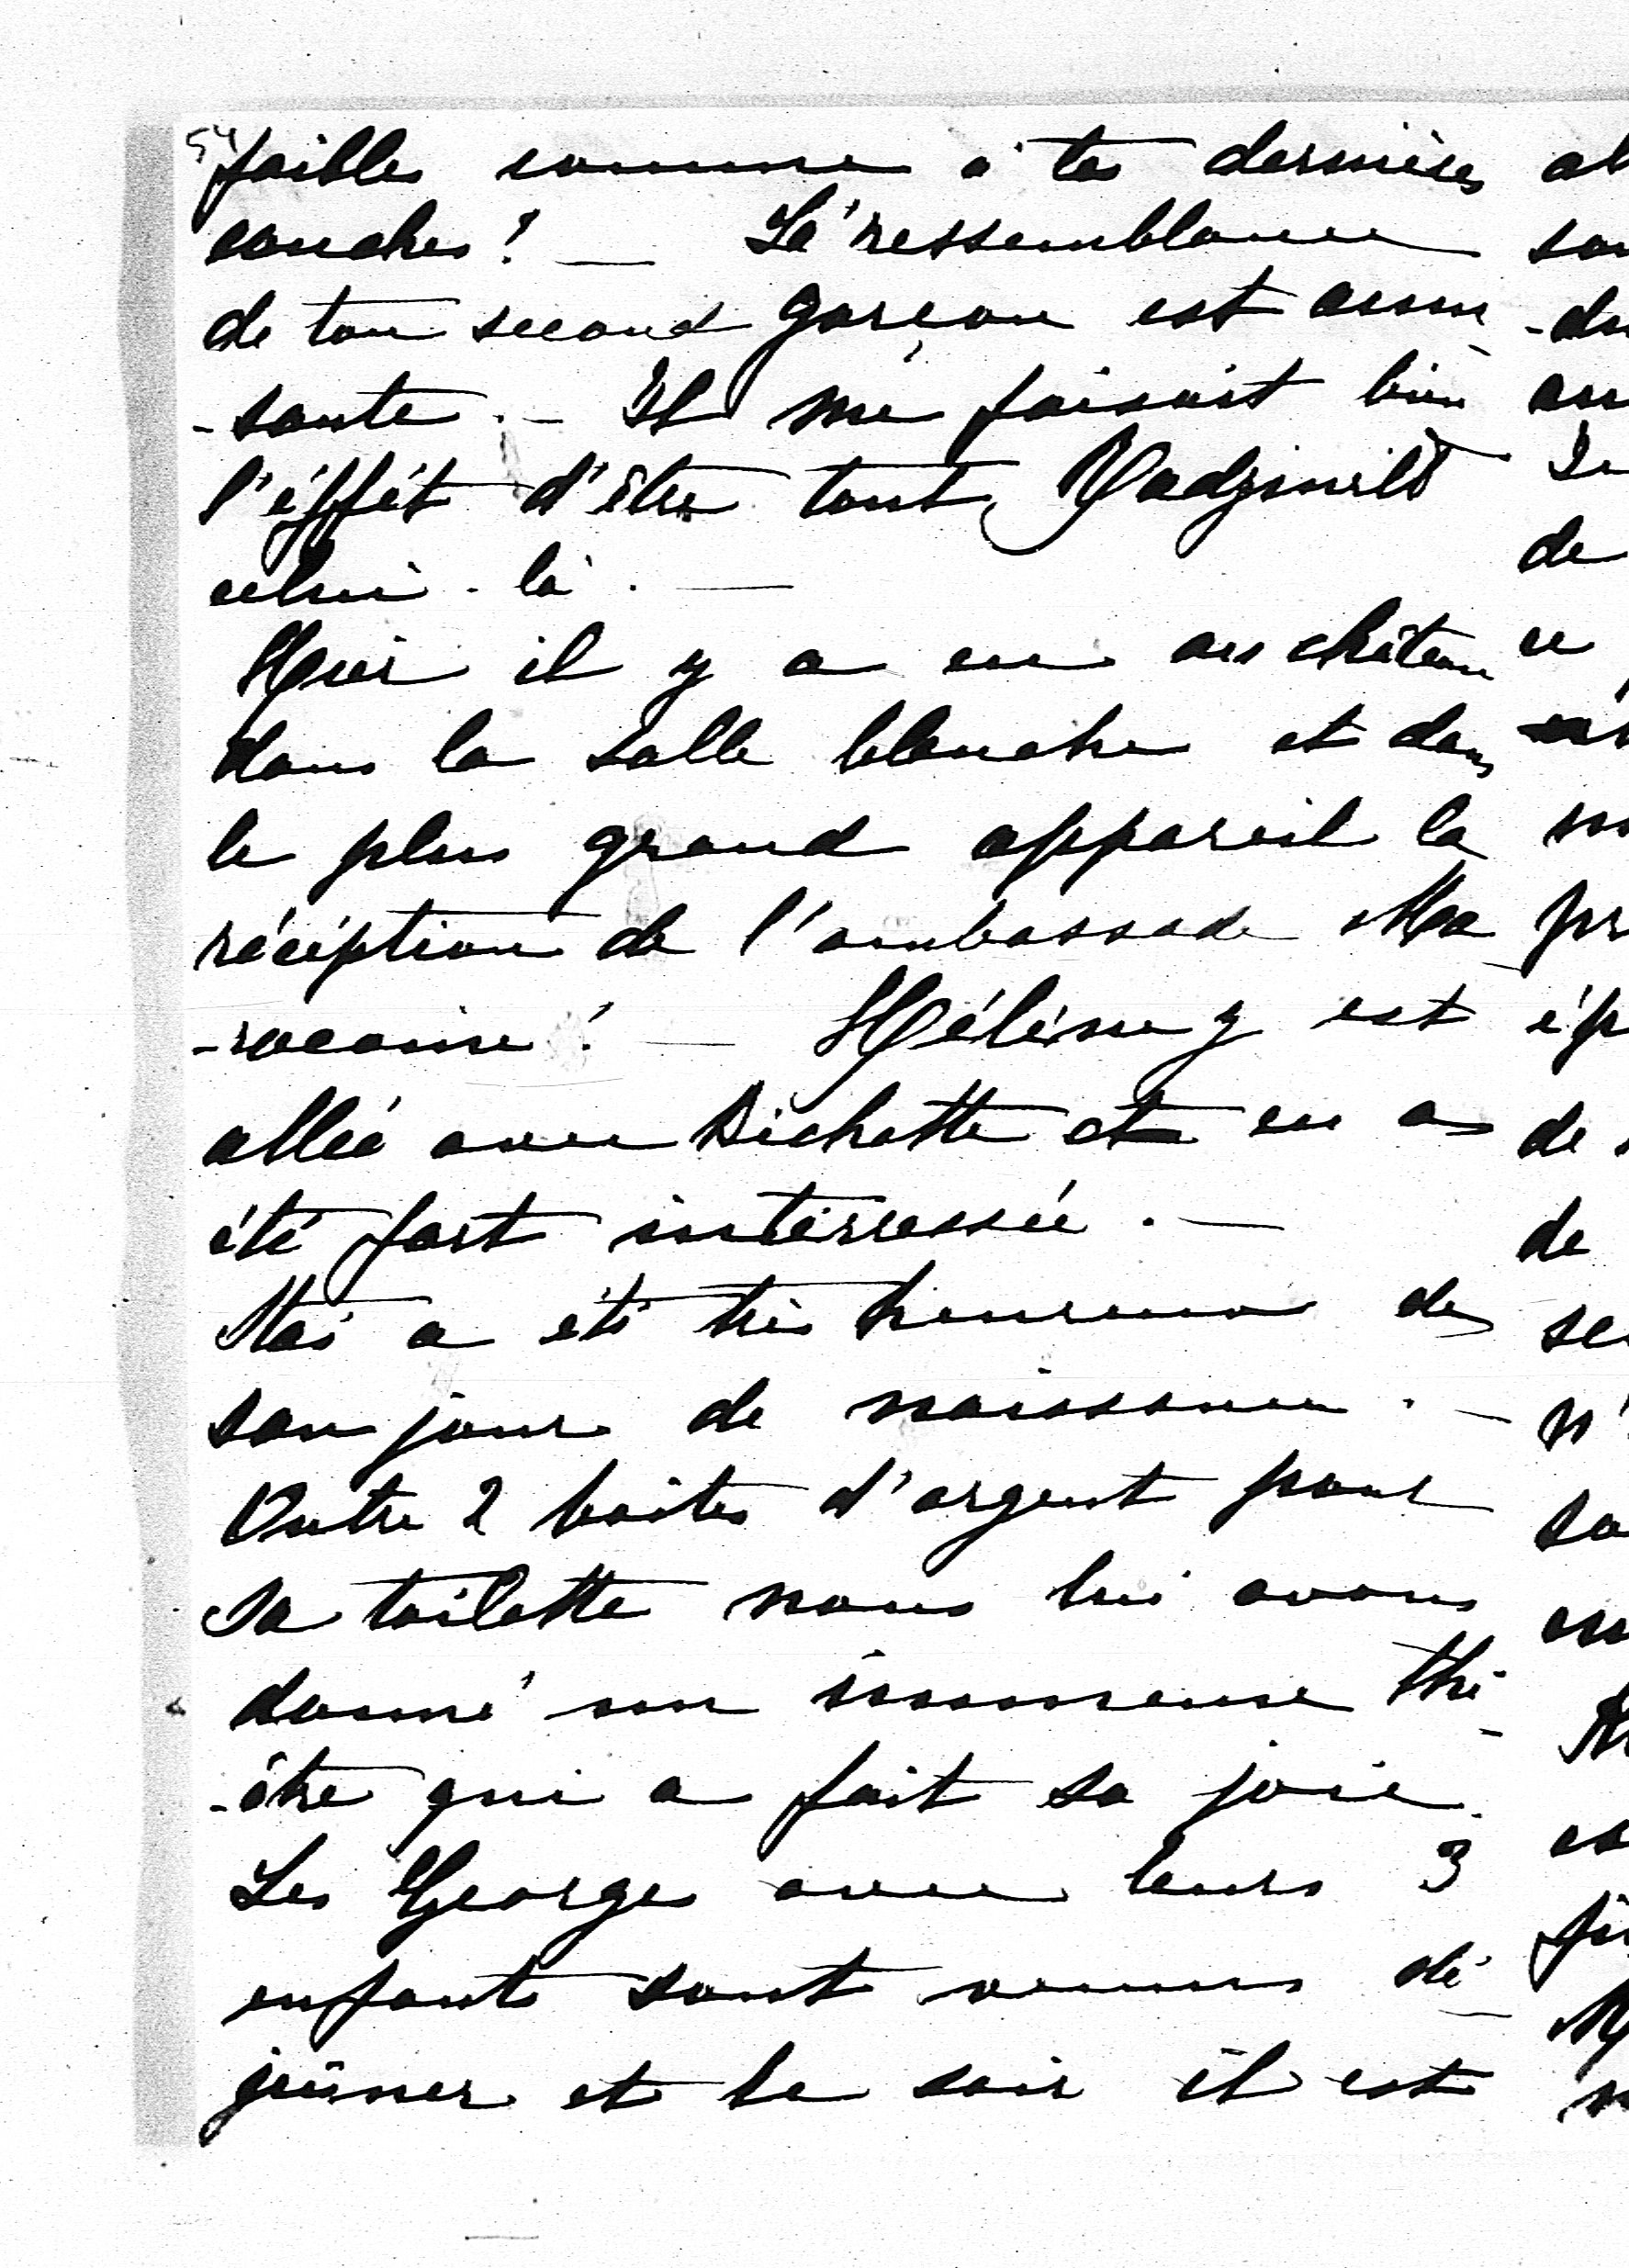 54
faible comme à tes dernières
couches! — La ressemblance
de ton second garçon est amu-
-sante. — Il me faisait bien
l'éffét d'être tout Radziwill
celui-là. —
Hier il y a eu au château
dans la salle blanche et dans
le plus grand appareil la
récéption de l'ambassade Ma-
-rocaine! — Hélène y est
allée avec Bichette et en a
été fort intérressée. —
Stas a été très heureux de
son jour de naissance. —
Outre 2 boites d'argent pour
sa toilette nous lui avons
donné un immense thé-
-âtre qui a fait sa joie.
Les George avec leurs 3
enfants sont venus dé-
jeûner et le soir il est